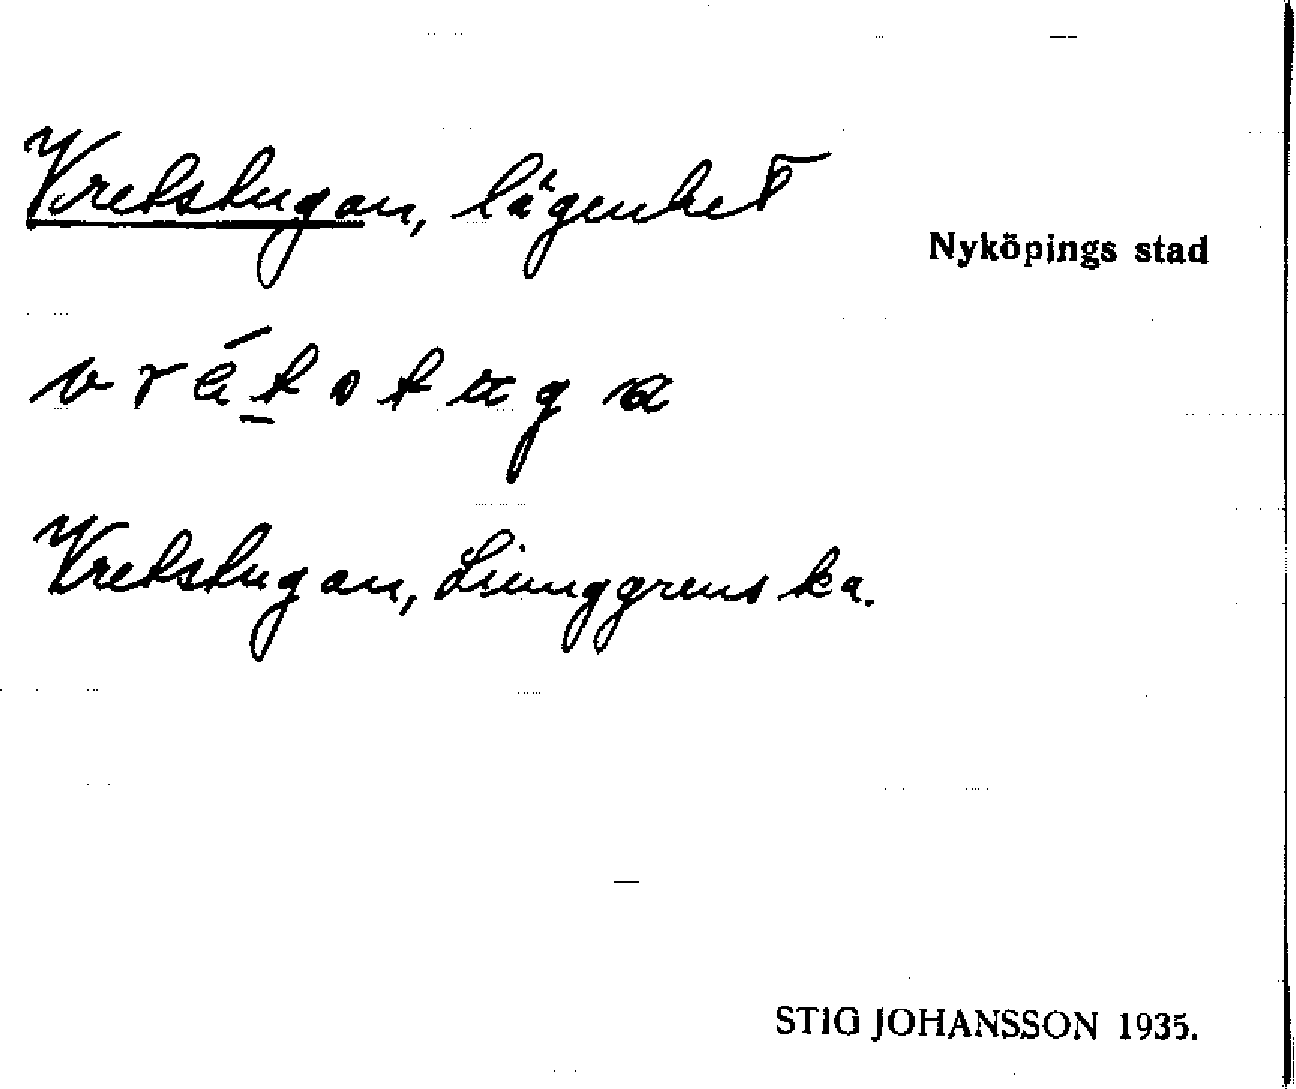 Vretstugan, lägenhet
Nyköpings stad
vrétstuga
Vretstugan, Ljunggrenska.
STIG JOHANSSON 1935.